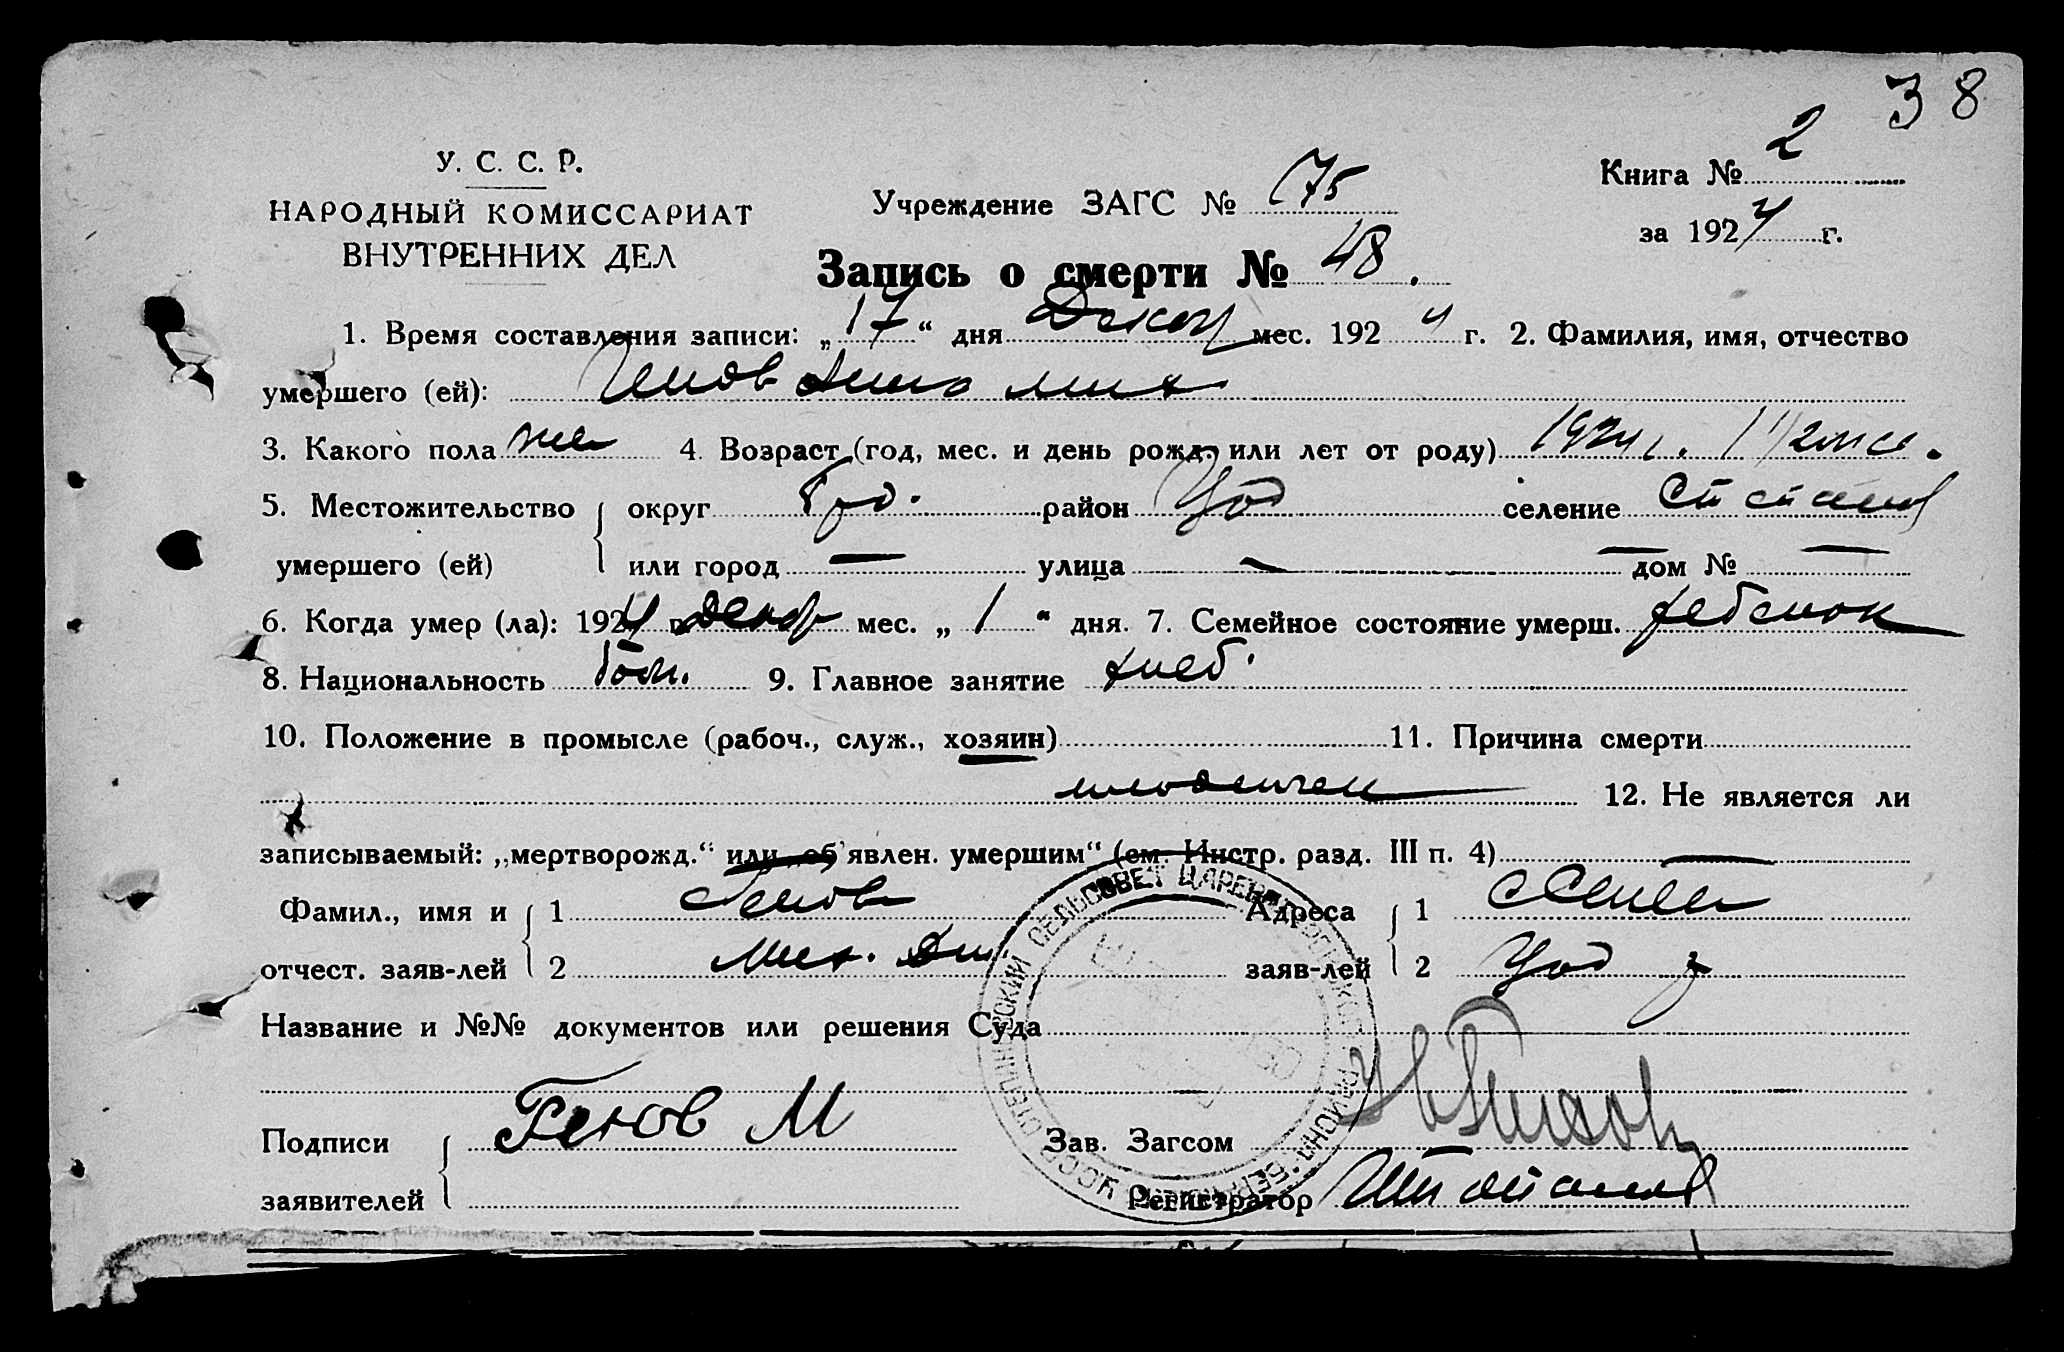 38
У. С. С. Р.
НАРОДНЫЙ КОМИССАРИАТ
ВНУТРЕННИХ ДЕЛ
Учреждение ЗАГС № 175
Книга № 2
за 1924 г.
Запись о смерти № 48.
1. Время составления записи: „17“ дня Декабр мес. 1924 г. 2. Фамилия, имя, отчество
умершего (ей): Генов
3. Какого пола 4. Возраст (год, мес. и день рожд. или лет от роду) 1924 г. 1 1/2 мес.
5. Местожительство округ район селение
умершего (ей) или город — улица — дом № —
6. Когда умер (ла): 1924 г. Декабр мес. „1“ дня. 7. Семейное состояние умерш. ребенок
8. Национальность 9. Главное занятие хлеб.
10. Положение в промысле (рабоч., служ., хозяин) 11. Причина смерти
младенчес 12. Не является ли
записываемый: „мертворожд.“ или „об'явлен. умершим“ (см. Инстр. разд. III п. 4) —
Фамил., имя и 1 Генов Адреса 1
отчест. заяв-лей 2 Мих. заяв-лей 2
Название и №№ документов или решения Суда
Подписи Генов М Зав. Загсом
заявителей Регистратор
СЕЛЬСОВЕТ